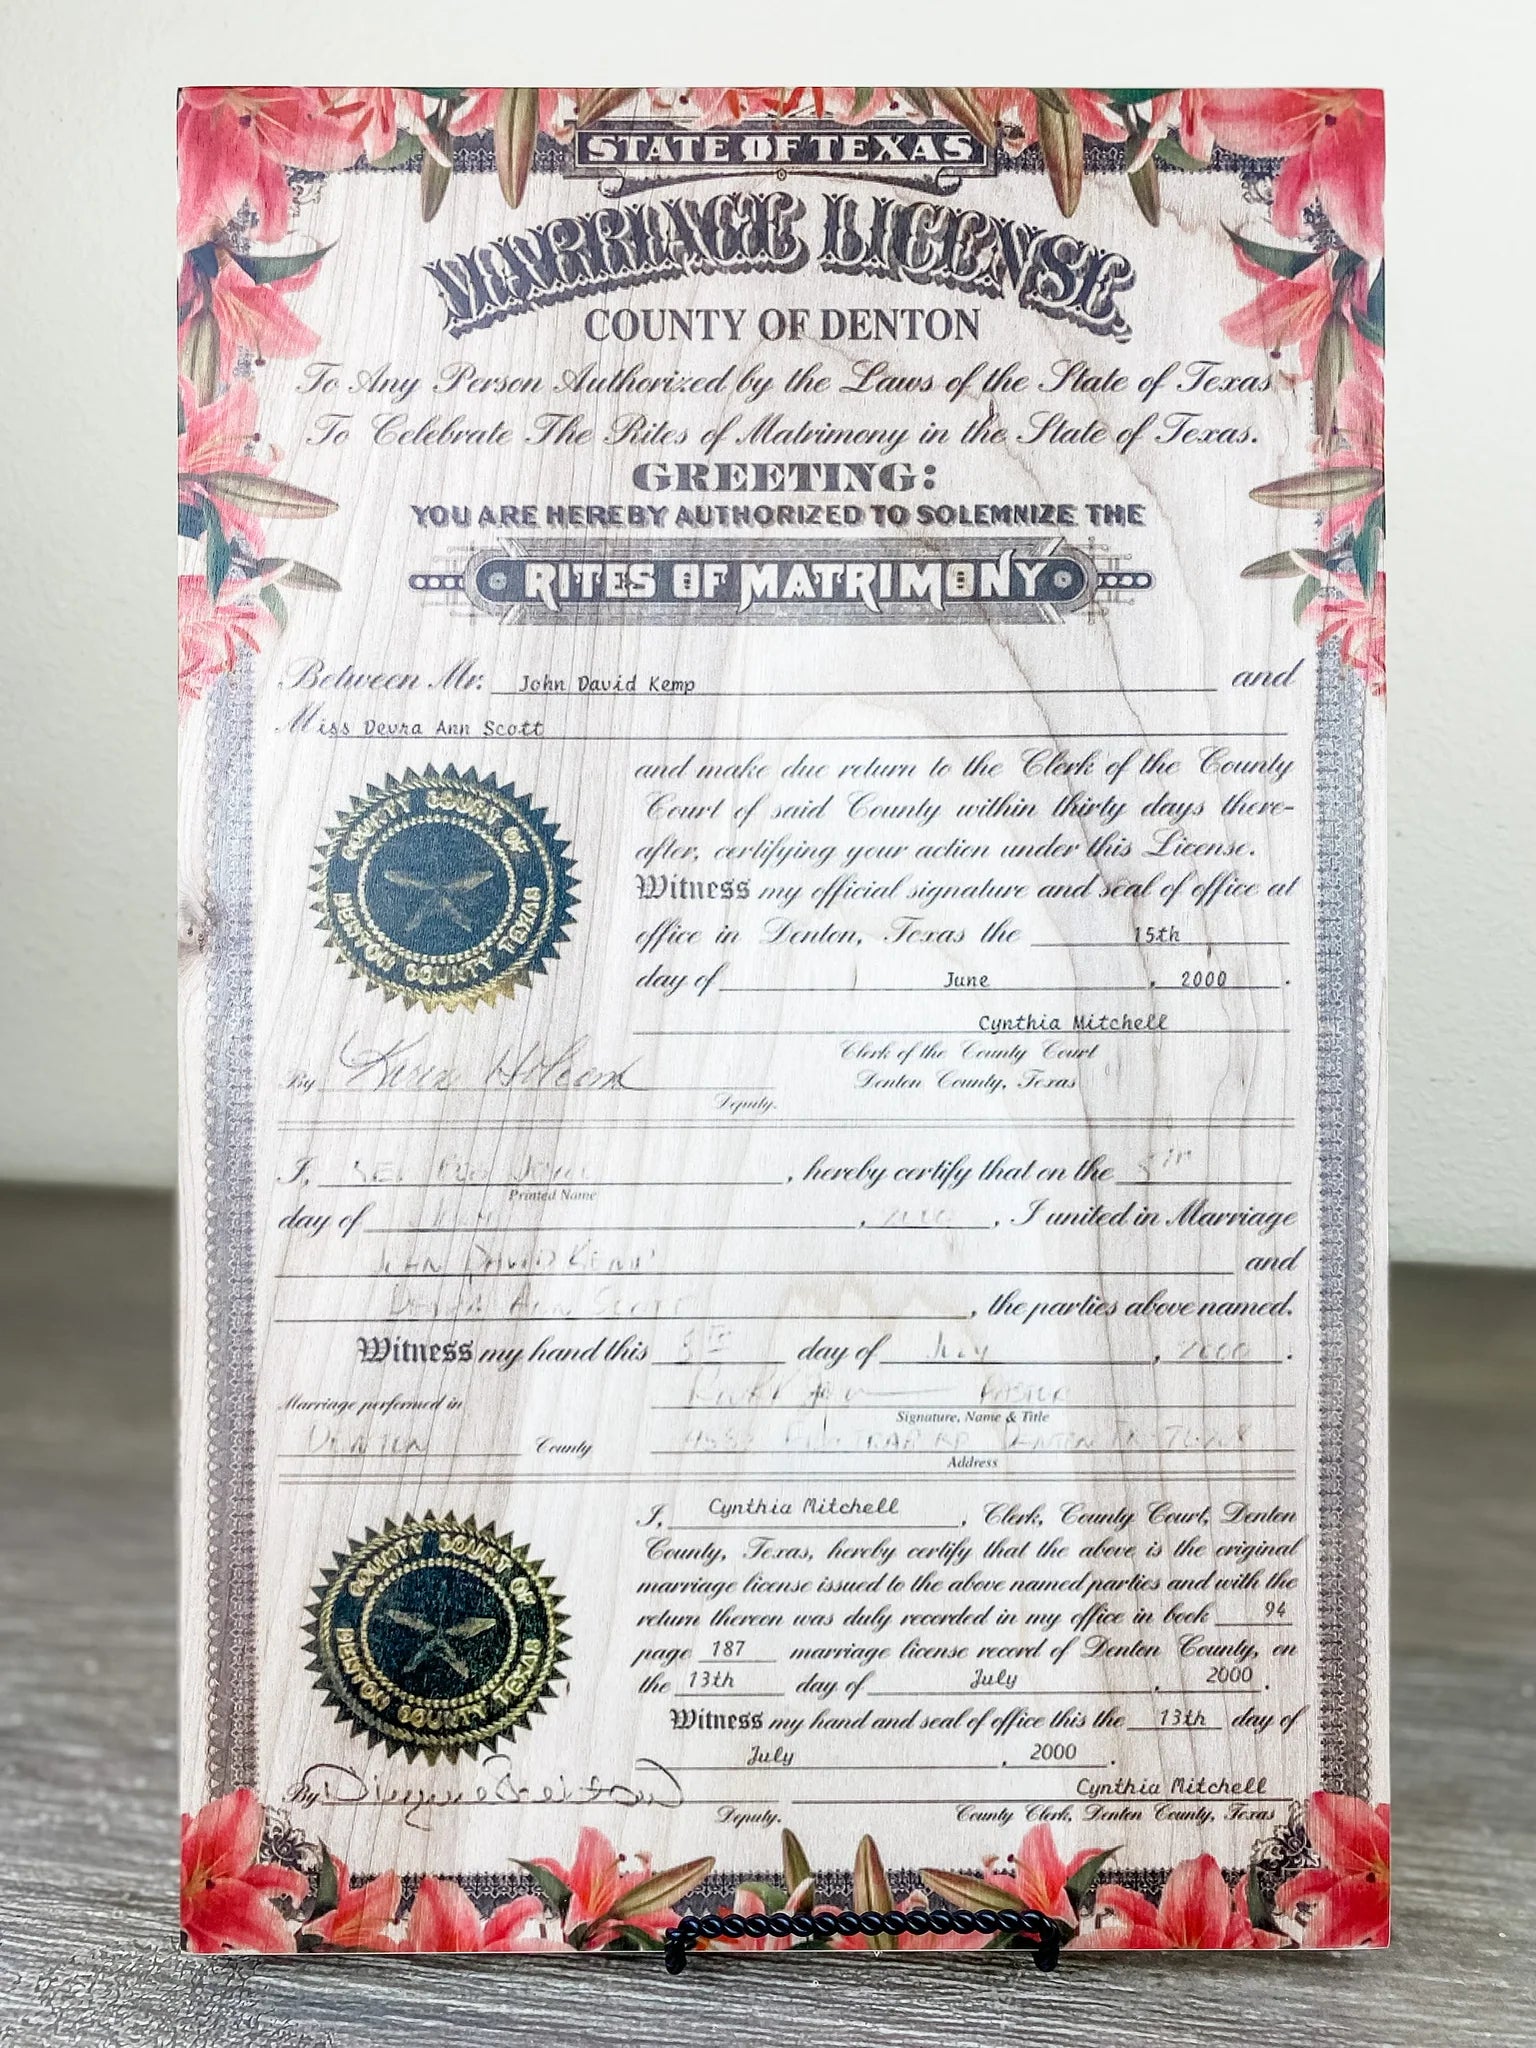 STATE OF TEXAS
MARRIAGE LICENSE
COUNTY OF DENTON
To Any Person Authorized by the Laws of the State of Texas
To Celebrate The Rites of Matrimony in the State of Texas.
GREETING:
YOU ARE HEREBY AUTHORIZED TO SOLEMNIZE THE
RITES OF MATRIMONY
Between Mr. John David Kemp and
Miss Devra Ann Scott
and make due return to the Clerk of the County
Court of said County within thirty days there-
after, certifying your action under this License.
Witness my official signature and seal of office at
office in Denton, Texas the 15th
day of June, 2000.
COUNTY COURT OF
DENTON COUNTY TEXAS
Cynthia Mitchell
Clerk of the County Court
Denton County, Texas
By
Deputy.
I, , hereby certify that on the 5th
Printed Name
day of , 2000, I united in Marriage
JOHN DAVID KEMP and
DEVRA ANN SCOTT, the parties above named.
Witness my hand this 5th day of July, 2000.
Marriage performed in
PASTOR
Signature, Name & Title
DENTON County
Address
I, Cynthia Mitchell, Clerk, County Court, Denton
County, Texas, hereby certify that the above is the original
marriage license issued to the above named parties and with the
return thereon was duly recorded in my office in book 94
page 187 marriage license record of Denton County, on
the 13th day of July, 2000.
Witness my hand and seal of office this the 13th day of
July, 2000.
COUNTY COURT OF
DENTON COUNTY TEXAS
Cynthia Mitchell
By
Deputy.
County Clerk, Denton County, Texas